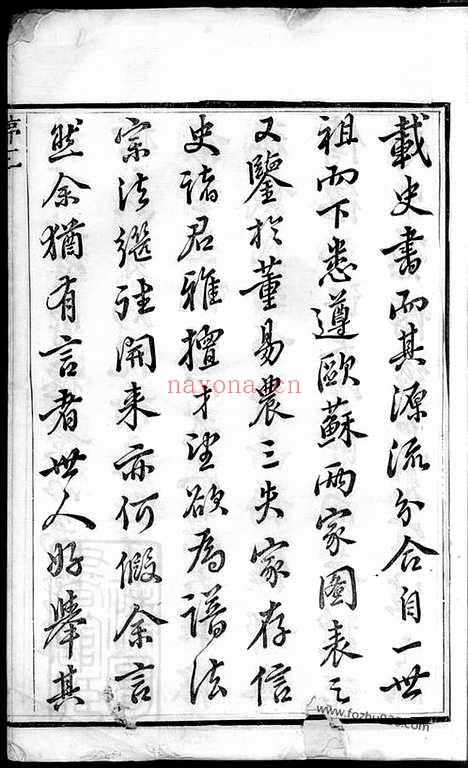 載史書而其源流分合自一世
祖而下悉遵歐蘇兩家圖表之
又鑒於董易農三失家存信
史諸君雅擅才望欲為譜法
宗法繼往開来亦何假余言
然余猶有言者世人好舉其
序二
nayona.cn